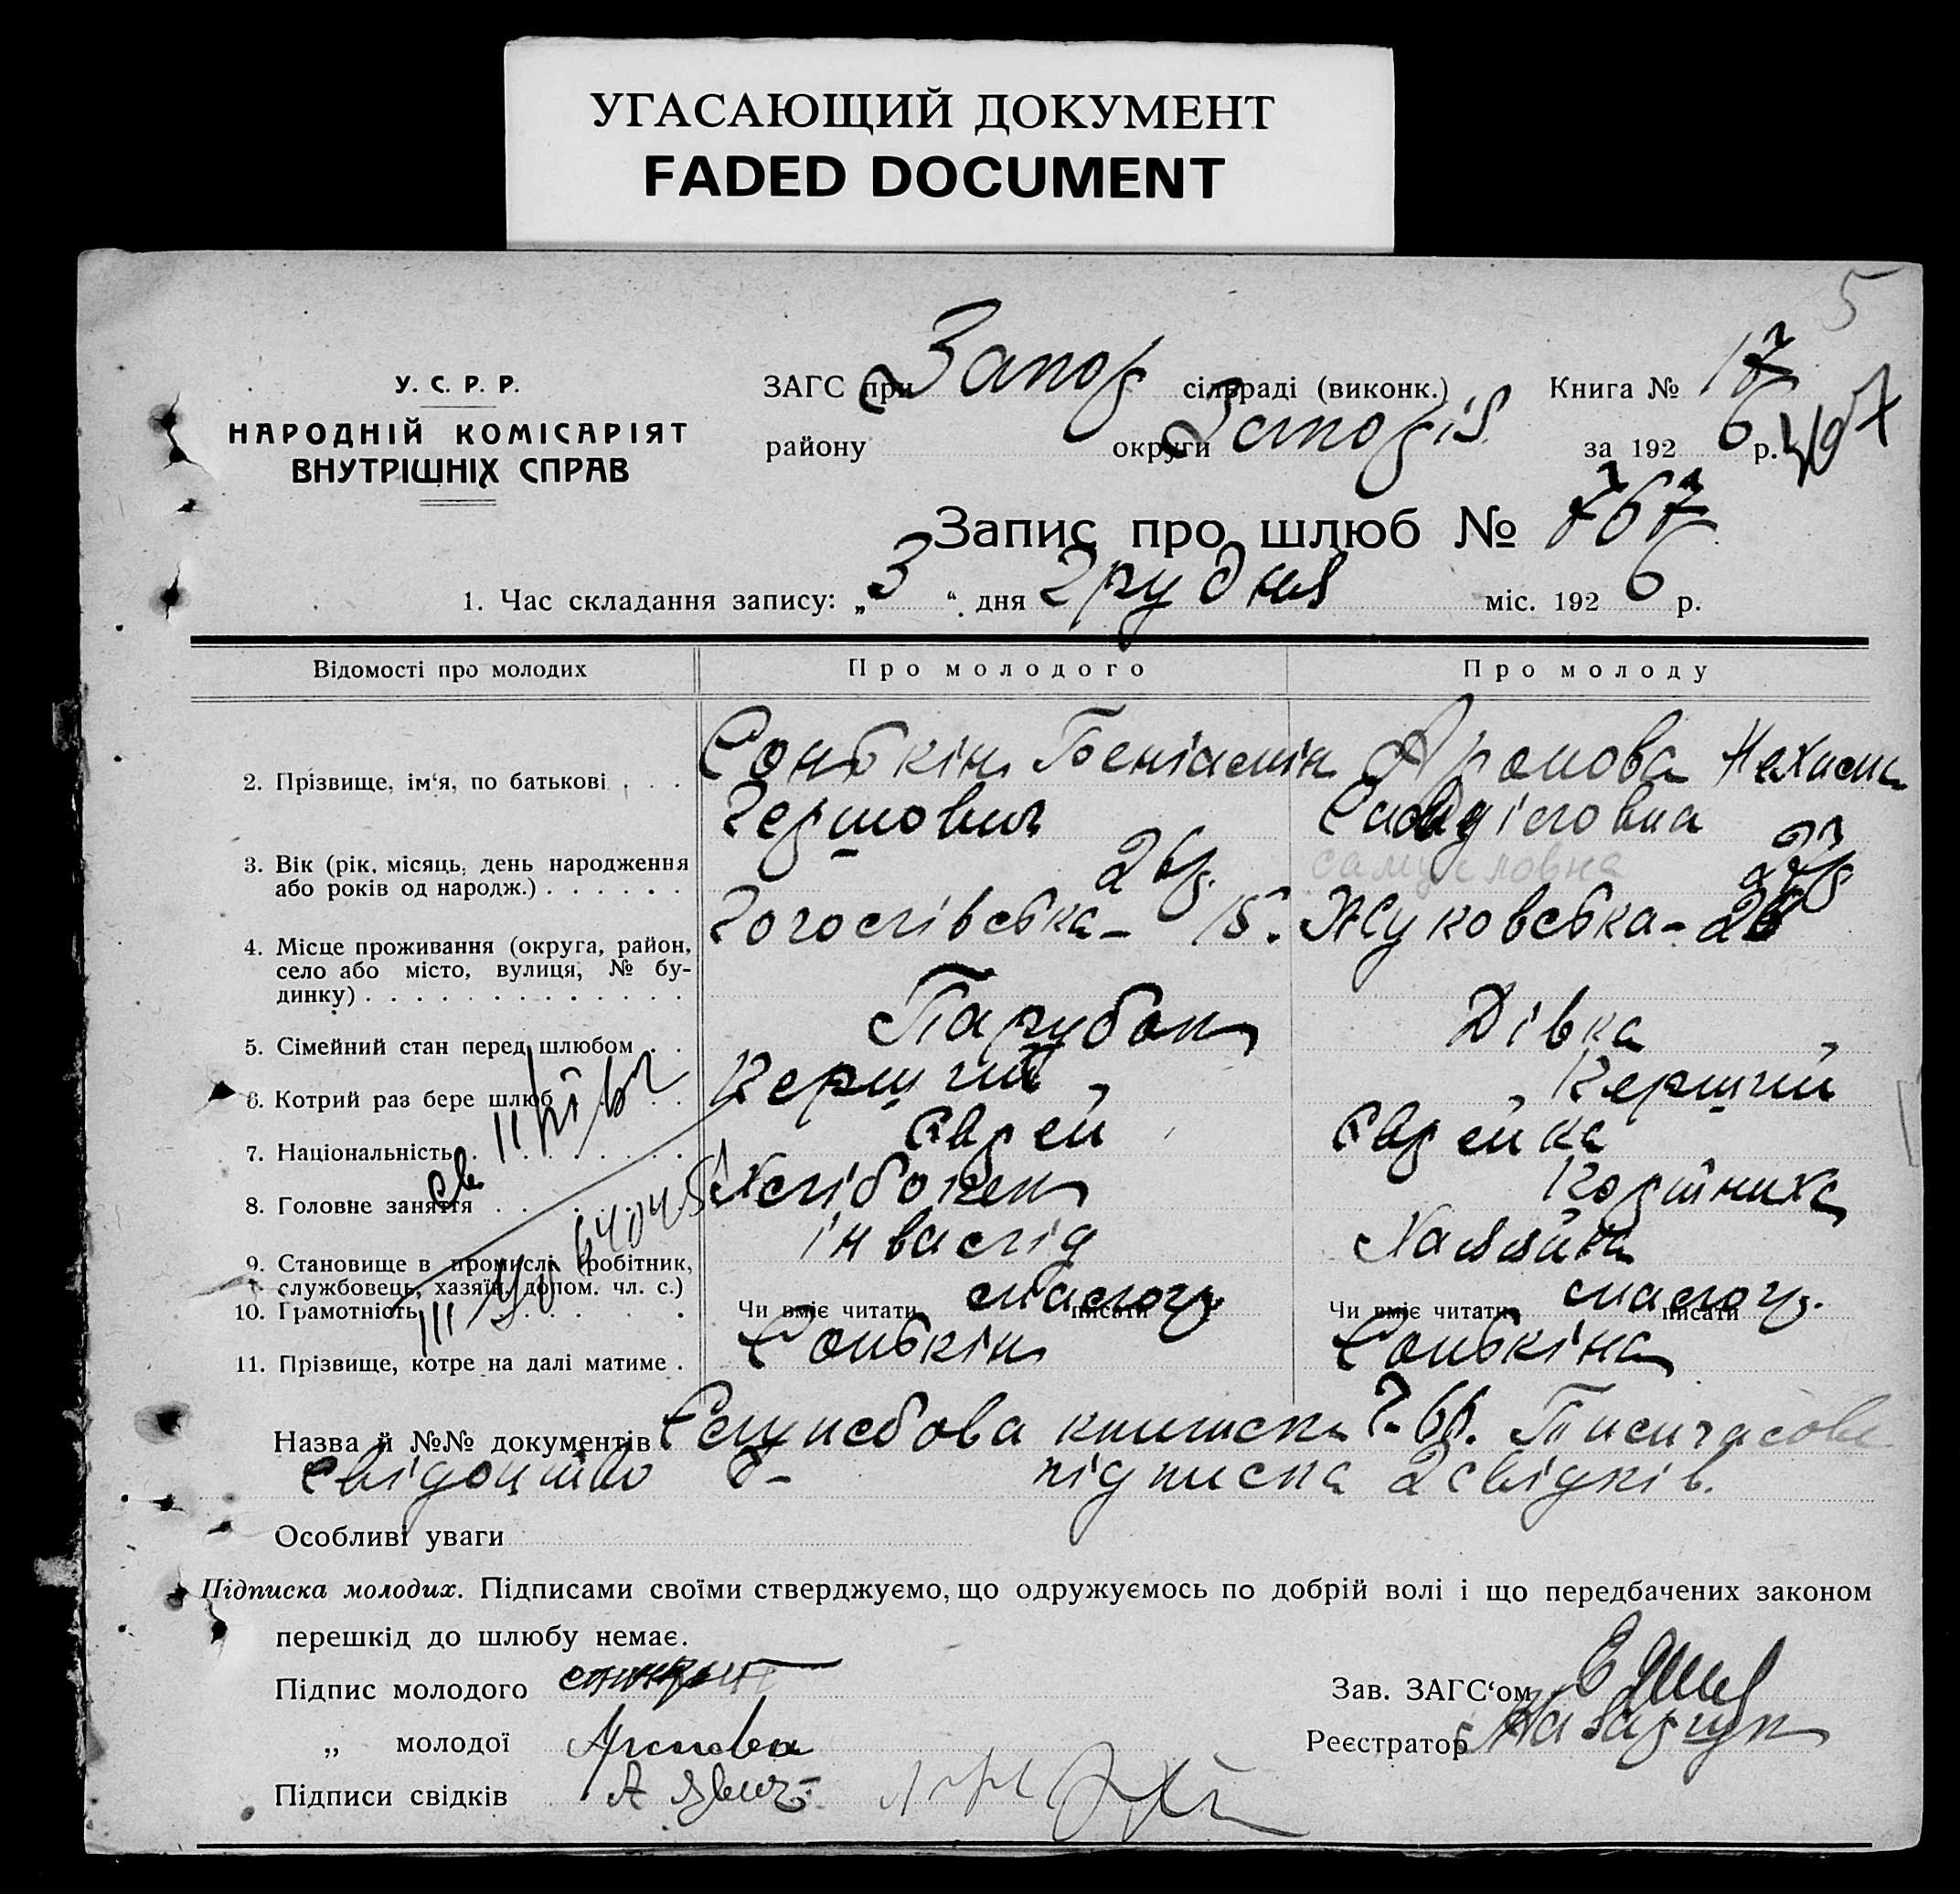 УГАСАЮЩИЙ ДОКУМЕНТ
FADED DOCUMENT
5
У. С. Р. Р.
НАРОДНІЙ КОМІСАРІЯТ
ВНУТРІШНІХ СПРАВ
ЗАГС при Запор сільраді (виконк.) Книга № 17
району округи Запоріз за 192 6 р.
Запис про шлюб № 767
1. Час складання запису: „3“ дня Грудня міс. 192 6 р.
Відомості про молодих Про молодого Про молоду
2. Прізвище, ім'я, по батькові . . . Сонькін Беніамін Аронова Нехама
Гершович
самуиловна
3. Вік (рік, місяць, день народження
або років од народж.) . . . . . .
4. Місце проживання (округа, район, Жуковська - 
село або місто, вулиця, № бу-
динку) . . . . . . . . . . . . .
5. Сімейний стан перед шлюбом . . Парубок Дівка
6. Котрий раз бере шлюб Перший Перший
7. Національність Єврей Єврейка
8. Головне заняття Хлібопек
9. Становище в промислі (робітник, інвалід Хазяйка
службовець, хазяїн, допом. чл. с.)
10. Грамотність Чи вміє читати писати малогр. Чи вміє читати писати малогр.
11. Прізвище, котре на далі матиме . Сонькін Сонькіна
Назва й №№ документів книжка Тимчасове
свідоцтво підписка 2 свідків.
Особливі уваги
Підписка молодих. Підписами своїми стверджуємо, що одружуємось по добрій волі і що передбачених законом
перешкід до шлюбу немає.
Підпис молодого Зав. ЗАГС'ом
„ молодої Аронова Реєстратор
Підписи свідків